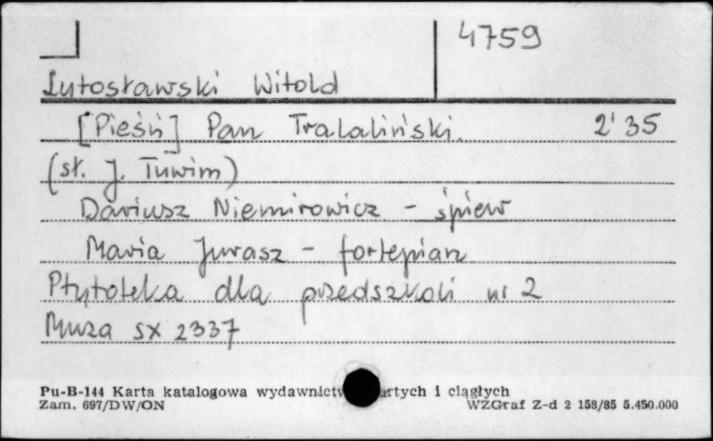 4759
Lutosławski Witold
[Pieśń] Pan Tralaliński. 2'35
(sł. J. Tuwim)
Dariusz Niemirowicz - śpiew
Maria Jurasz - fortepian
Płytoteka dla przedszkoli nr 2
Muza SX 2337
Pu-B-144 Karta katalogowa wydawnictw i ciągłych
Zam. 697/DW/ON WZGraf Z-d 2 158/85 5.450.000